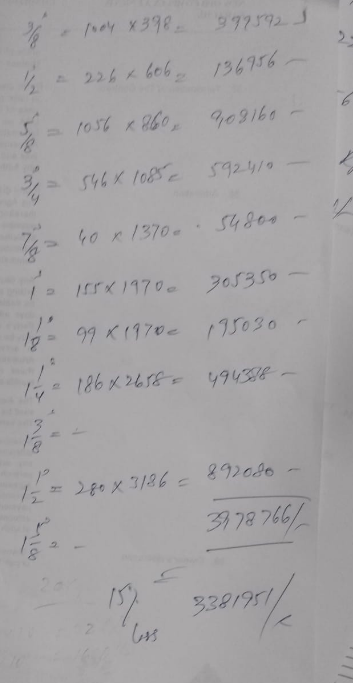 3/8" = 1004 × 398 = 399592
1/2" = 226 × 606 = 136956 —
5/8" = 1056 × 860 = 908160 —
3/4" = 546 × 1085 = 592410 —
7/8" = 40 × 1370 = 54800 —
1" = 155 × 1970 = 305350 —
1 1/8" = 99 × 1970 = 195030 —
1 1/4" = 186 × 2658 = 494388 —
1 3/8" = —
1 1/2" = 280 × 3186 = 892080 —
3978766/-
1 5/8" = —
15% 3381951/-
less